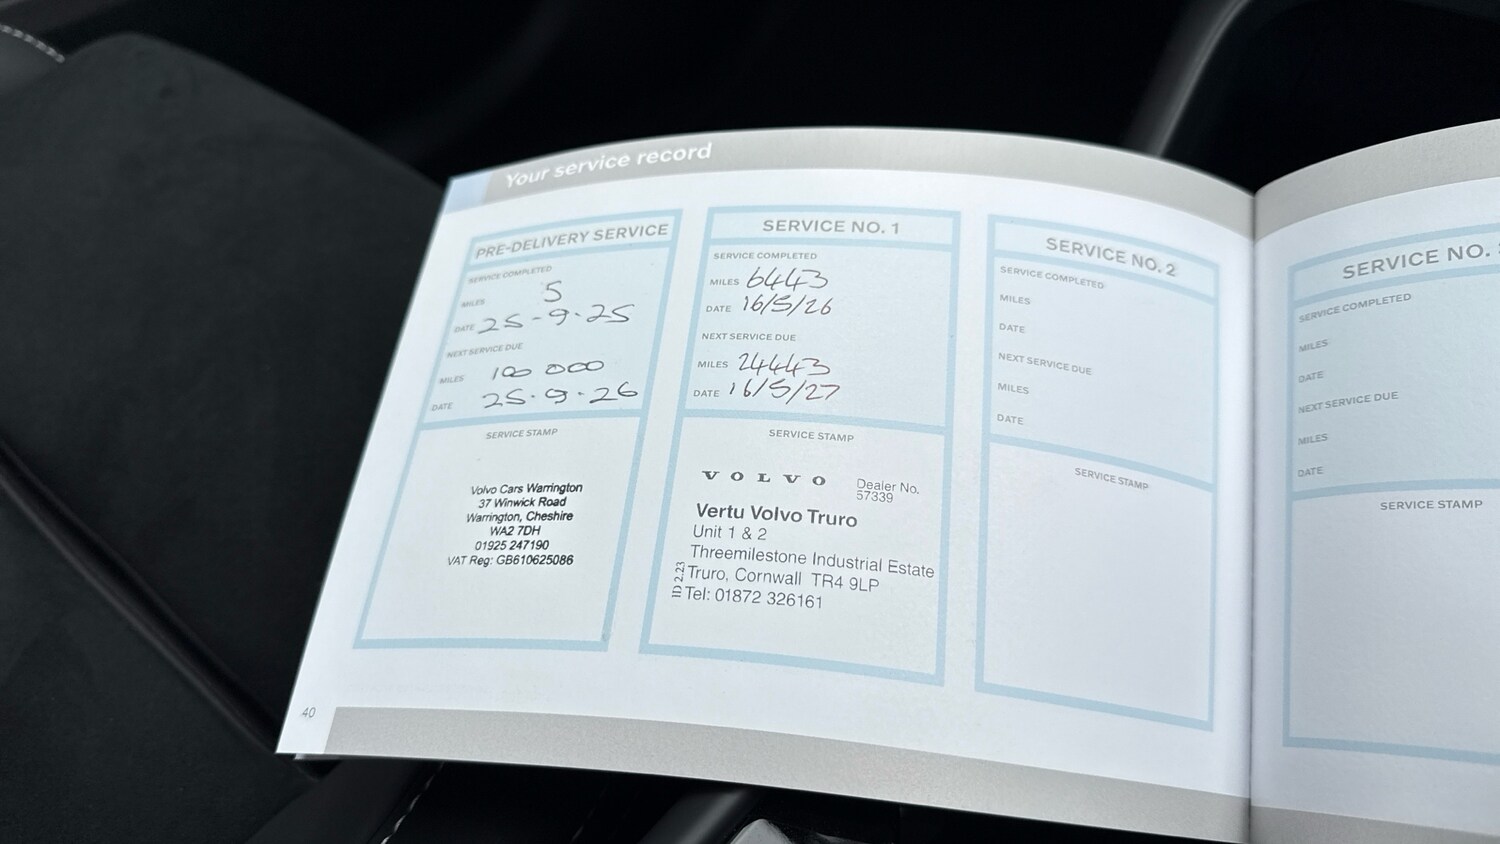 Your service record
PRE-DELIVERY SERVICE
SERVICE COMPLETED
MILES 5
DATE 25-9-25
NEXT SERVICE DUE
MILES 100 000
DATE 25.9.26
SERVICE STAMP
Volvo Cars Warrington
37 Winwick Road
Warrington, Cheshire
WA2 7DH
01925 247190
VAT Reg: GB610625086
SERVICE NO. 1
SERVICE COMPLETED
MILES 6443
DATE 16/5/26
NEXT SERVICE DUE
MILES 24443
DATE 16/5/27
SERVICE STAMP
VOLVO Dealer No.
57339
Vertu Volvo Truro
Unit 1 & 2
Threemilestone Industrial Estate
Truro, Cornwall TR4 9LP
Tel: 01872 326161
ID 2.23
SERVICE NO. 2
SERVICE COMPLETED
MILES
DATE
NEXT SERVICE DUE
MILES
DATE
SERVICE STAMP
SERVICE NO.
SERVICE COMPLETED
MILES
DATE
NEXT SERVICE DUE
MILES
DATE
SERVICE STAMP
40